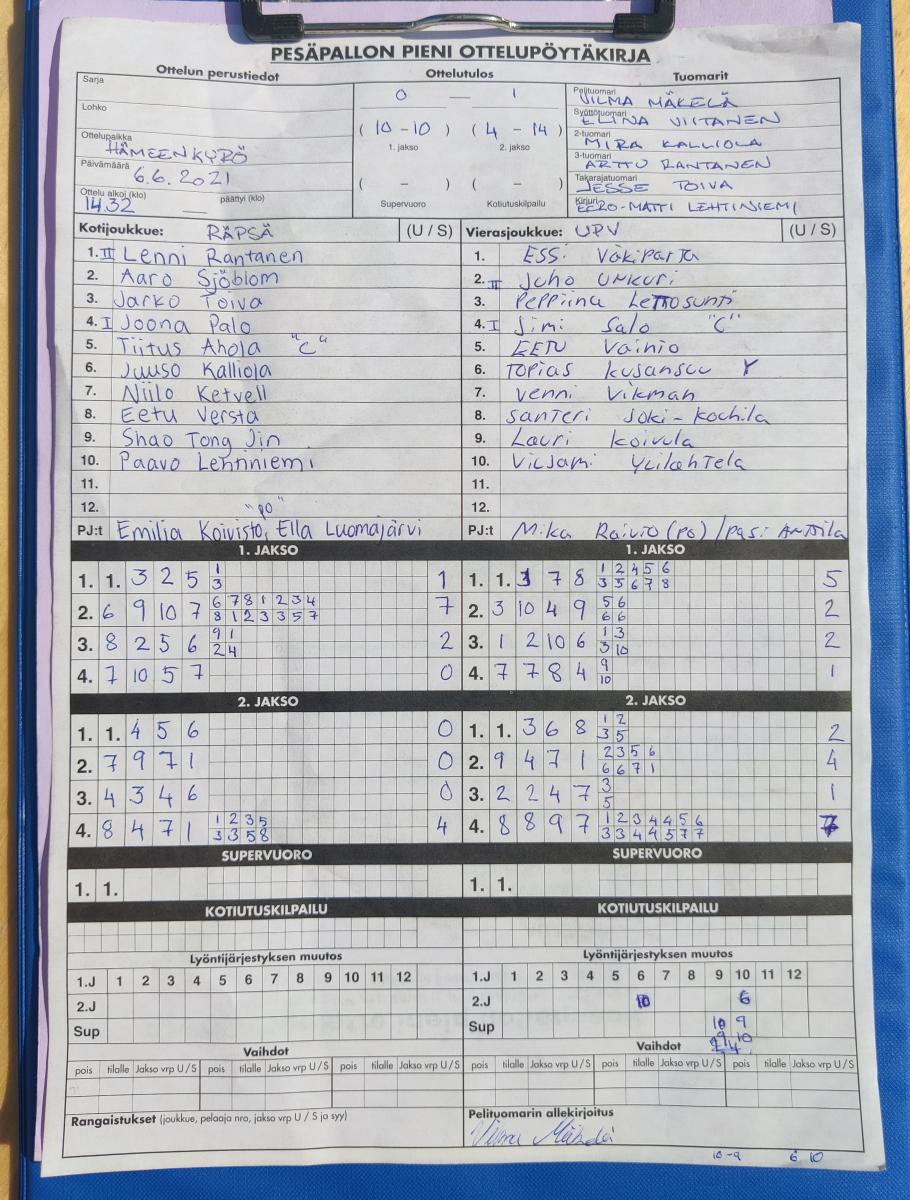 PESÄPALLON PIENI OTTELUPÖYTÄKIRJA
Ottelun perustiedot Ottelutulos Tuomarit
Sarja
Lohko
Ottelupaikka
HÄMEENKYRÖ
Päivämäärä
6.6.2021
Ottelu alkoi (klo) päättyi (klo)
14.32
0 — 1
(10-10) (4-14)
1. jakso 2. jakso
( - ) ( - )
Supervuoro Kotiutuskilpailu
Pelituomari
VILMA MÄKELÄ
Syöttötuomari
ELINA VIITANEN
2-tuomari
MIRA KALLIOLA
3-tuomari
ARTTU RANTANEN
Takarajatuomari
JESSE TOIVA
Kirjuri
EERO-MATTI LEHTINIEMI
Kotijoukkue: RÄPSÄ (U / S) Vierasjoukkue: UPV (U / S)
1. II Lenni Rantanen
2. Aaro Sjöblom
3. Jarko Toiva
4. I Joona Palo
5. Tiitus Ahola "C"
6. Juuso Kalliola
7. Niilo Ketvell
8. Eetu Versta
9. Shao Tong Jin
10. Paavo Lehtiniemi
11.
12.
"PO"
PJ:t Emilia Koivisto, Ella Luomajärvi
1. ESSi Väkiparta
2. II Juho UNKUri
3. Peppiina
4. I Jimi Salo "C"
5. EETU Vainio
6. TOPIAS Kujansuu Y
7. Venni Vikman
8. Santeri Joki-Kochila
9. Lauri Koivula
10. ViLJami Ylilahtela
11.
12.
PJ:t Mika Raivio (po) / Pasi Anttila
1. JAKSO 1. JAKSO
1. 1. 3 2 5 1 1
3
2. 6 9 10 7 6 7 8 1 2 3 4 7
8 1 2 3 3 5 7
3. 8 2 5 6 9 1 2
2 4
4. 7 10 5 7 0
1. 1. 3 7 8 1 2 4 5 6 5
3 5 6 7 8
2. 3 10 4 9 5 6 2
6 6
3. 1 2 10 6 1 3 2
3 10
4. 7 7 8 4 9 1
10
2. JAKSO 2. JAKSO
1. 1. 4 5 6 0
2. 7 9 7 1 0
3. 4 3 4 6 0
4. 8 4 7 1 1 2 3 5 4
3 3 5 8
1. 1. 3 6 8 1 2 2
3 5
2. 9 4 7 1 2 3 5 6 4
6 6 7 1
3. 2 2 4 7 3 1
5
4. 8 8 9 7 1 2 3 4 4 5 6 7
3 3 4 4 5 7 7
SUPERVUORO SUPERVUORO
1. 1. 1. 1.
KOTIUTUSKILPAILU KOTIUTUSKILPAILU
Lyöntijärjestyksen muutos Lyöntijärjestyksen muutos
1.J 1 2 3 4 5 6 7 8 9 10 11 12 1.J 1 2 3 4 5 6 7 8 9 10 11 12
2.J 2.J 10 6
Sup Sup 10 9
9 10
Vaihdot Vaihdot
pois tilalle Jakso vrp U / S pois tilalle Jakso vrp U / S pois tilalle Jakso vrp U / S pois tilalle Jakso vrp U / S pois tilalle Jakso vrp U / S pois tilalle Jakso vrp U / S
Rangaistukset (joukkue, pelaaja nro, jakso vrp U / S ja syy) Pelituomarin allekirjoitus
Vilma Mäkelä
10-9 6 10